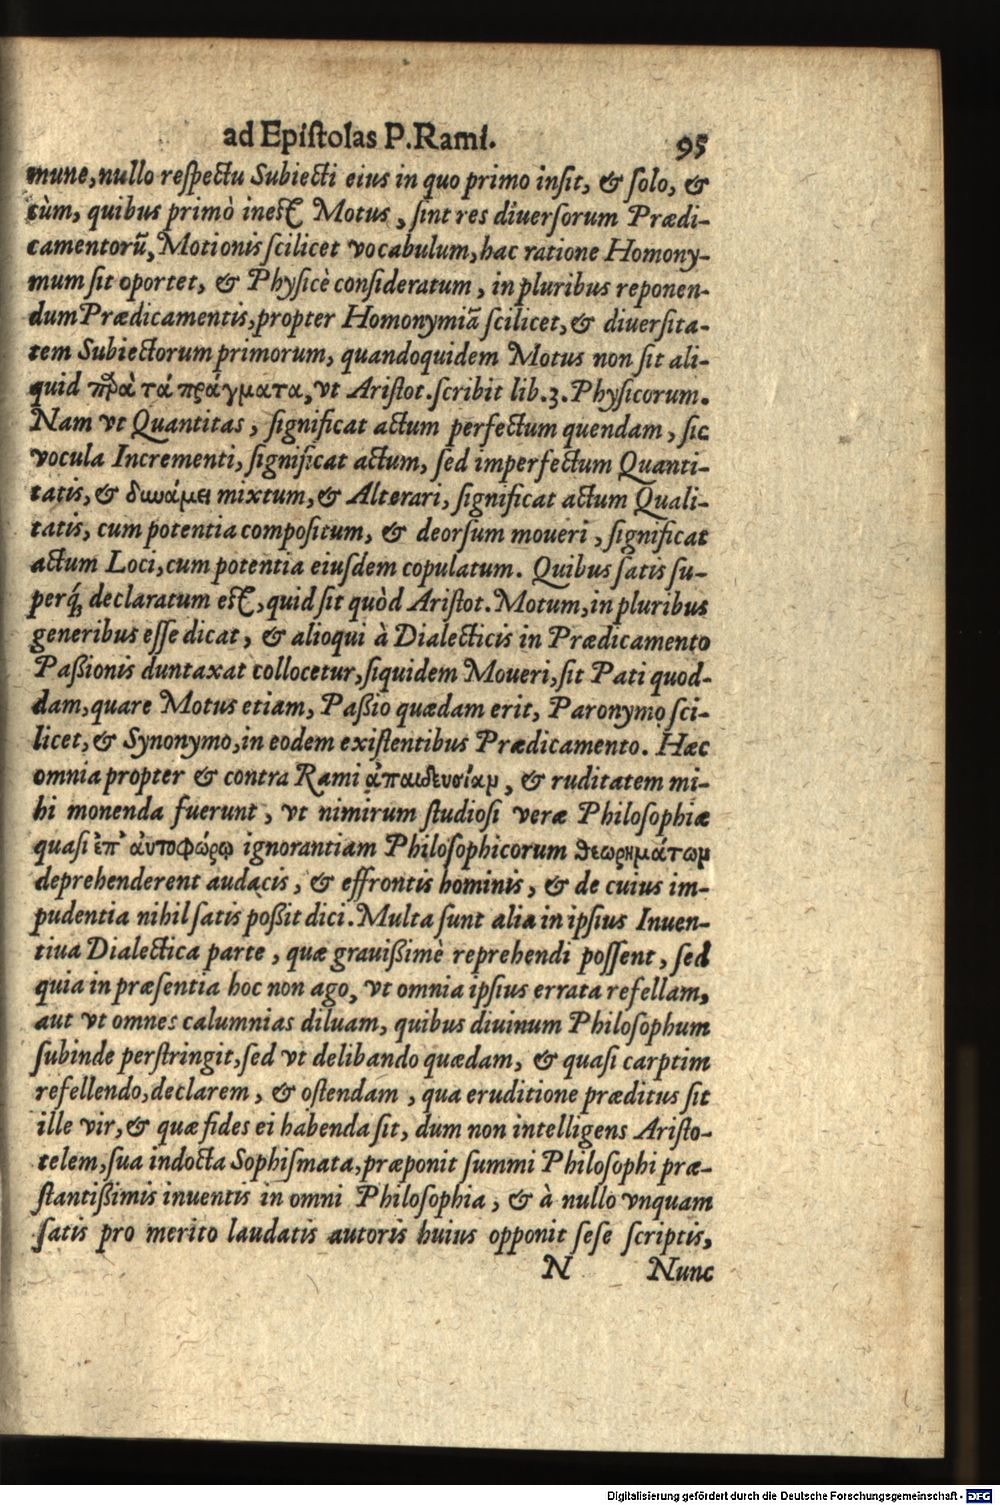 ad Epiſtolas P. Rami. 95
mune, nullo reſpectu Subiecti eius in quo primo inſit, & ſolo, &
cùm, quibus primò ineſt Motus, ſint res diuerſorum Prædi-
camentorũ, Motionis ſcilicet vocabulum, hac ratione Homony-
mum ſit oportet, & Phyſicè conſideratum, in pluribus reponen-
dum Prædicamentis, propter Homonymiã ſcilicet, & diuerſita-
tem Subiectorum primorum, quandoquidem Motus non ſit ali-
quid παρὰ τὰ πράγματα, vt Ariſtot. ſcribit lib. 3. Phyſicorum.
Nam vt Quantitas, ſignificat actum perfectum quendam, ſic
vocula Incrementi, ſignificat actum, ſed imperfectum Quanti-
tatis, & δυνάμει mixtum, & Alterari, ſignificat actum Quali-
tatis, cum potentia compoſitum, & deorſum moueri, ſignificat
actum Loci, cum potentia eiuſdem copulatum. Quibus ſatis ſu-
perq́; declaratum eſt, quid ſit quòd Ariſtot. Motum, in pluribus
generibus eſſe dicat, & alioqui à Dialecticis in Prædicamento
Paßionis duntaxat collocetur, ſiquidem Moueri, ſit Pati quod-
dam, quare Motus etiam, Paßio quædam erit, Paronymo ſci-
licet, & Synonymo, in eodem exiſtentibus Prædicamento. Hæc
omnia propter & contra Rami ἀπαιδευσίαν, & ruditatem mi-
hi monenda fuerunt, vt nimirum ſtudioſi veræ Philoſophiæ
quaſi ἐπ' αὐτοφώρῳ ignorantiam Philoſophicorum θεωρημάτων
deprehenderent audacis, & effrontis hominis, & de cuius im-
pudentia nihil ſatis poßit dici. Multa ſunt alia in ipſius Inuen-
tiua Dialectica parte, quæ grauißimè reprehendi poſſent, ſed
quia in præſentia hoc non ago, vt omnia ipſius errata refellam,
aut vt omnes calumnias diluam, quibus diuinum Philoſophum
ſubinde perſtringit, ſed vt delibando quædam, & quaſi carptim
refellendo, declarem, & oſtendam, qua eruditione præditus ſit
ille vir, & quæ fides ei habenda ſit, dum non intelligens Ariſto-
telem, ſua indocta Sophiſmata, præponit ſummi Philoſophi præ-
ſtantißimis inuentis in omni Philoſophia, & à nullo vnquam
ſatis pro merito laudatis autoris huius opponit ſeſe ſcriptis,
N Nunc
Digitalisierung gefördert durch die Deutsche Forschungsgemeinschaft - DFG